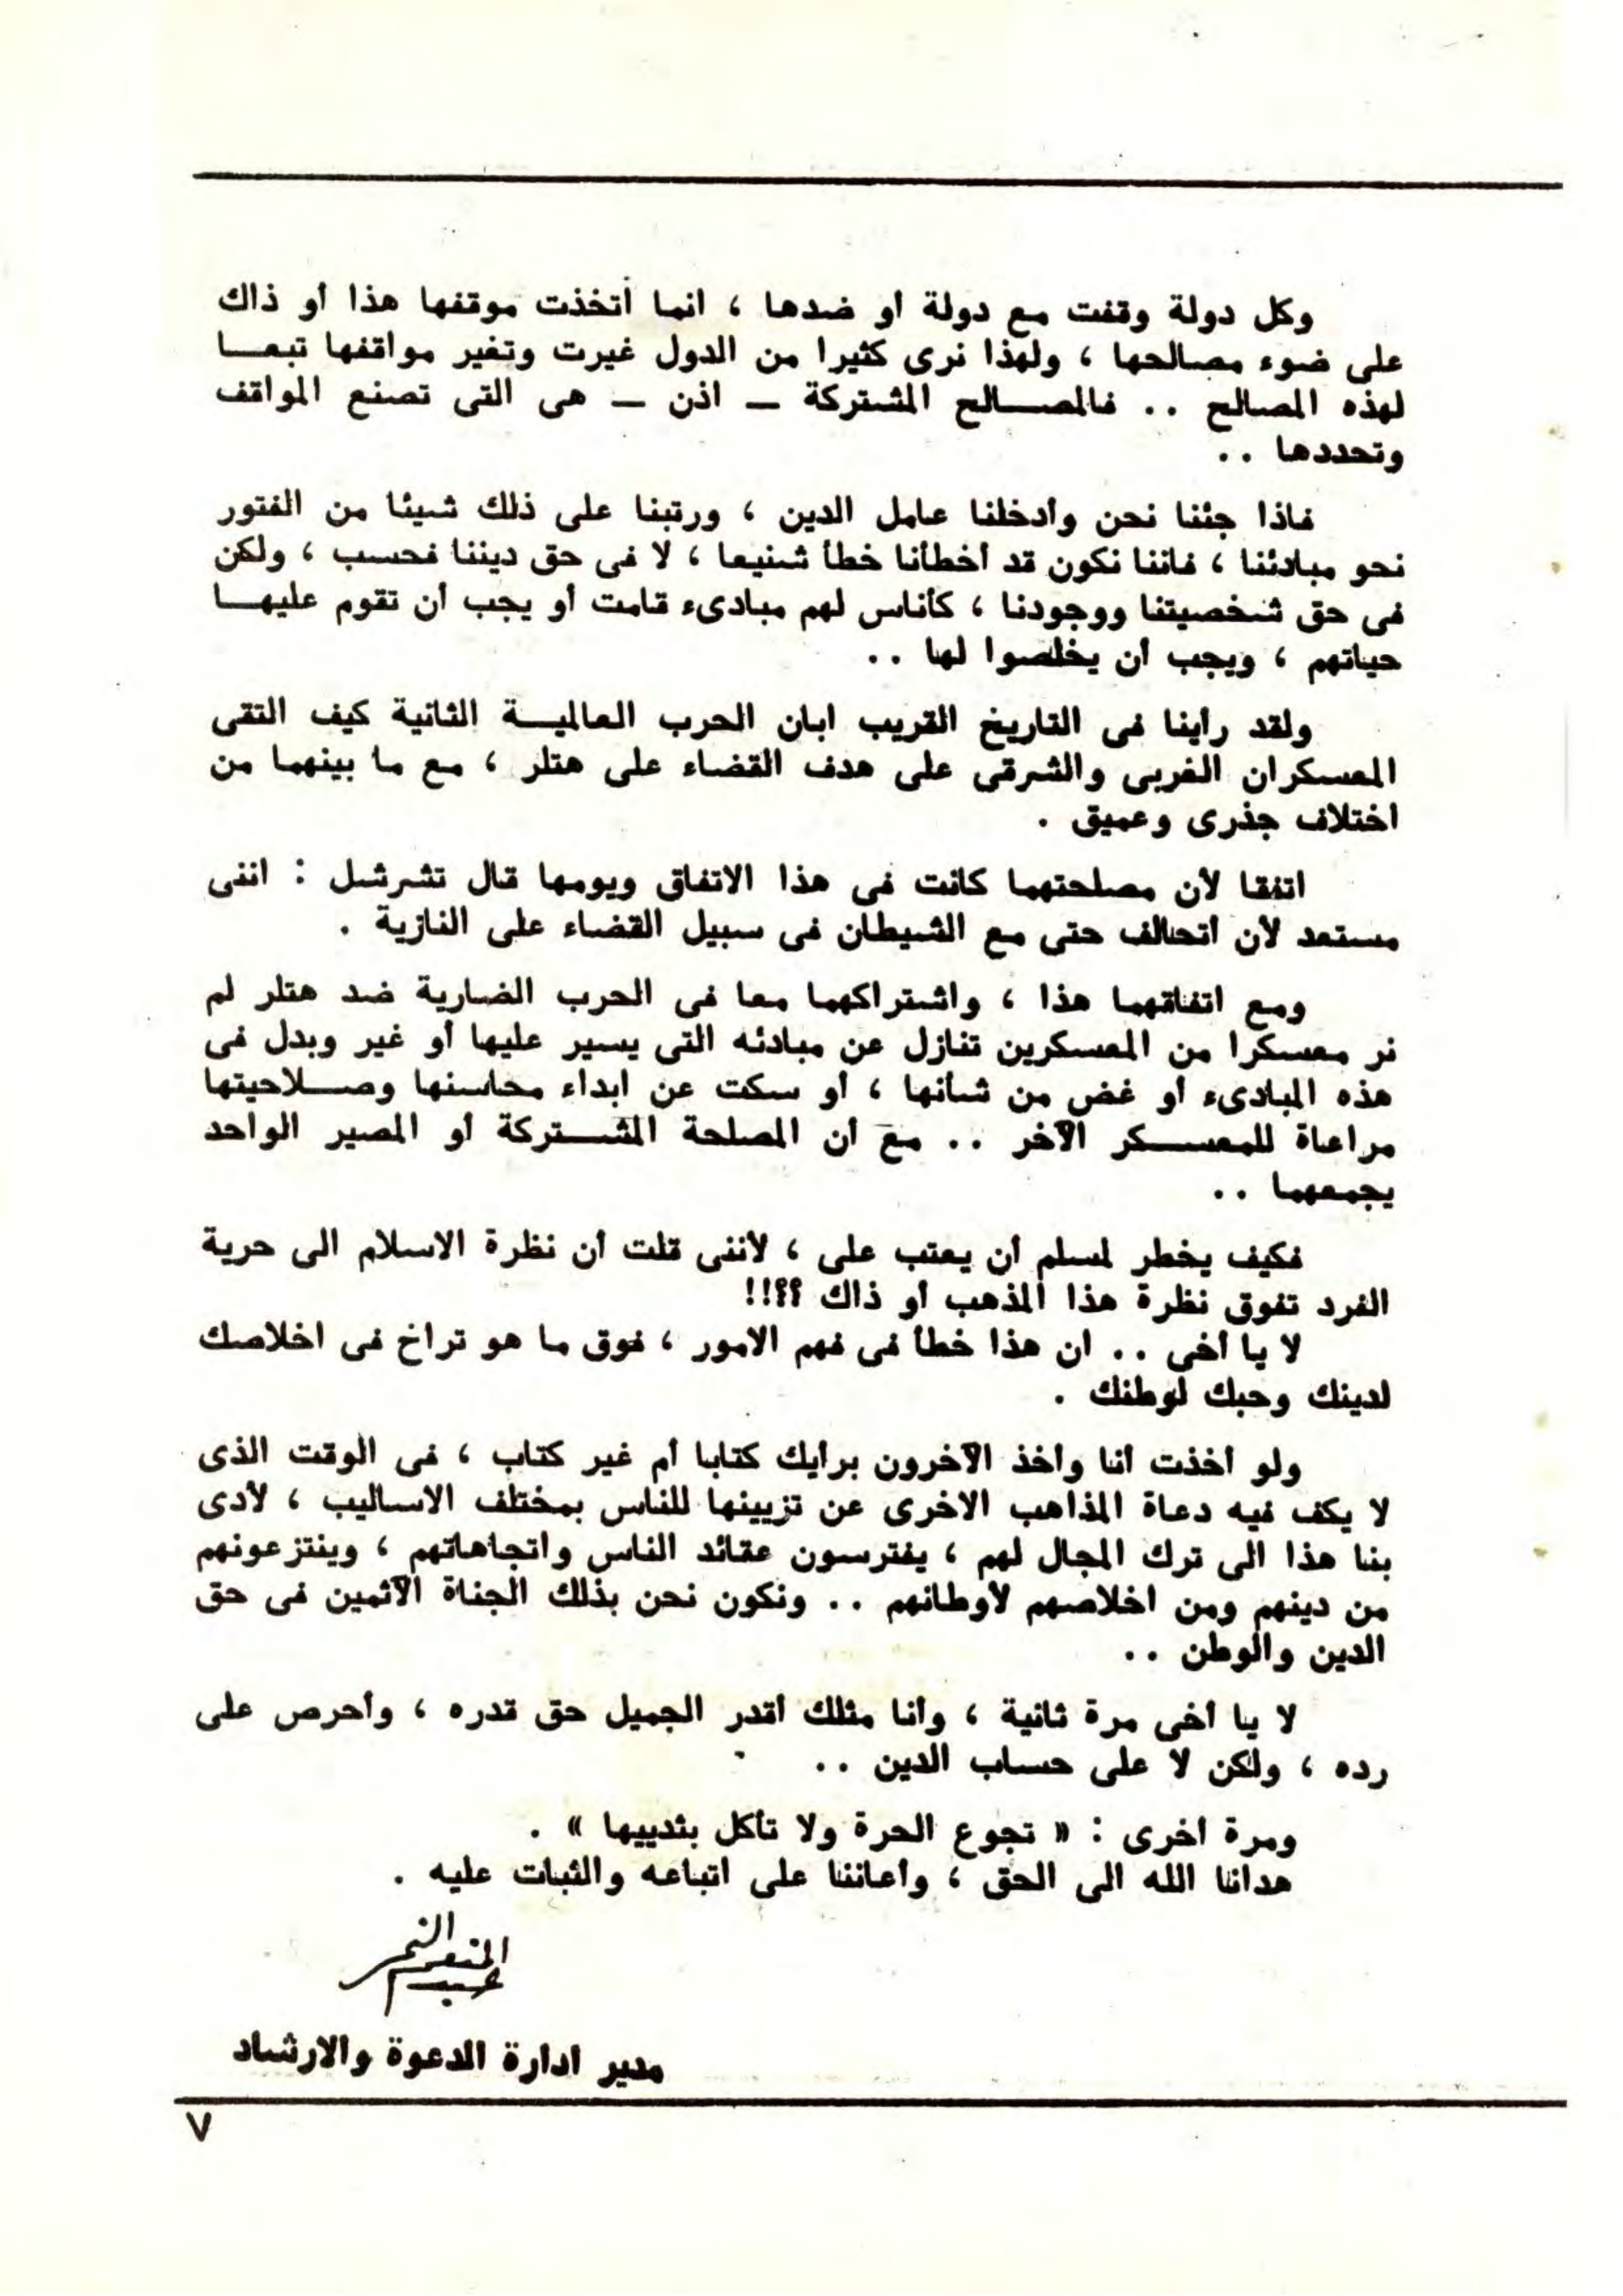 وكل دولة وقفت مع دولة أو ضدها ، انما أتخذت موقفها هذا أو ذاك
على ضوء مصالحها ، ولهذا نرى كثيرا من الدول غيرت وتغير مواقفها تبعـــا
لهذه المصالح .. فالمصـــالح المشتركة ــ اذن ــ هى التى تصنع المواقف
وتحددها ..
فاذا جئنا نحن وأدخلنا عامل الدين ، ورتبنا على ذلك شيئا من الفتور
نحو مبادئنا ، فاننا نكون قد أخطأنا خطأ شنيعا ، لا فى حق ديننا فحسب ، ولكن
فى حق شخصيتنا ووجودنا ، كأناس لهم مبادىء قامت أو يجب أن تقوم عليهـــا
حياتهم ، ويجب أن يخلصوا لها ..
ولقد رأينا فى التاريخ القريب ابان الحرب العالميـــة الثانية كيف التقى
المعسكران الغربى والشرقى على هدف القضاء على هتلر ، مع ما بينهما من
اختلاف جذرى وعميق .
اتفقا لأن مصلحتهما كانت فى هذا الاتفاق ويومها قال تشرشل : اننى
مستعد لأن أتحالف حتى مع الشيطان فى سبيل القضاء على النازية .
ومع اتفاقهما هذا ، واشتراكهما معا فى الحرب الضارية ضد هتلر لم
نر معسكرا من المعسكرين تنازل عن مبادئه التى يسير عليها أو غير وبدل فى
هذه المبادىء أو غض من شأنها ، أو سكت عن ابداء محاسنها وصـــلاحيتها
مراعاة للمعســـكر الآخر .. مع أن المصلحة المشـــتركة أو المصير الواحد
يجمعهما ..
فكيف يخطر لمسلم أن يعتب على ، لأننى قلت أن نظرة الاسلام الى حرية
الفرد تفوق نظرة هذا المذهب أو ذاك ؟؟!!
لا يا أخى .. ان هذا خطأ فى فهم الامور ، فوق ما هو تراخ فى اخلاصك
لدينك وحبك لوطنك .
ولو أخذت أنا وأخذ الآخرون برأيك كتابا أم غير كتاب ، فى الوقت الذى
لا يكف فيه دعاة المذاهب الاخرى عن تزيينها للناس بمختلف الاساليب ، لأدى
بنا هذا الى ترك المجال لهم ، يفترسون عقائد الناس واتجاهاتهم ، وينتزعونهم
من دينهم ومن اخلاصهم لأوطانهم .. ونكون نحن بذلك الجناة الآثمين فى حق
الدين والوطن ..
لا يا أخى مرة ثانية ، وأنا مثلك أقدر الجميل حق قدره ، وأحرص على
رده ، ولكن لا على حساب الدين ..
ومرة اخرى : « تجوع الحرة ولا تأكل بثدييها » .
هدانا الله الى الحق ، وأعاننا على اتباعه والثبات عليه .
عبد المنعم النمر
مدير ادارة الدعوة والارشاد
٧